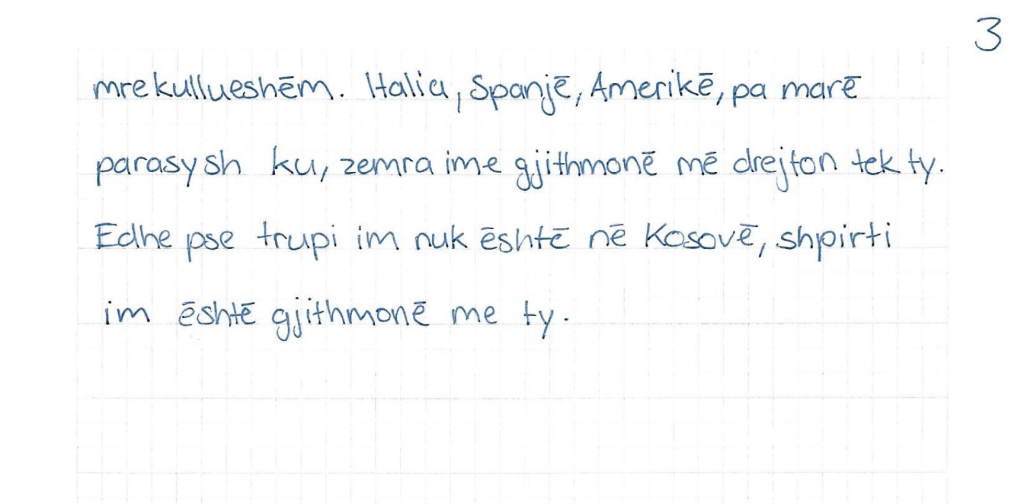 3
mrekullueshēm. Italia, Spanjē, Amerikē, pa marē
parasysh ku, zemra ime gjithmonē mē drejton tek ty.
Edhe pse trupi im nuk ēshtē nē Kosovē, shpirti
im ēshtē gjithmonē me ty.